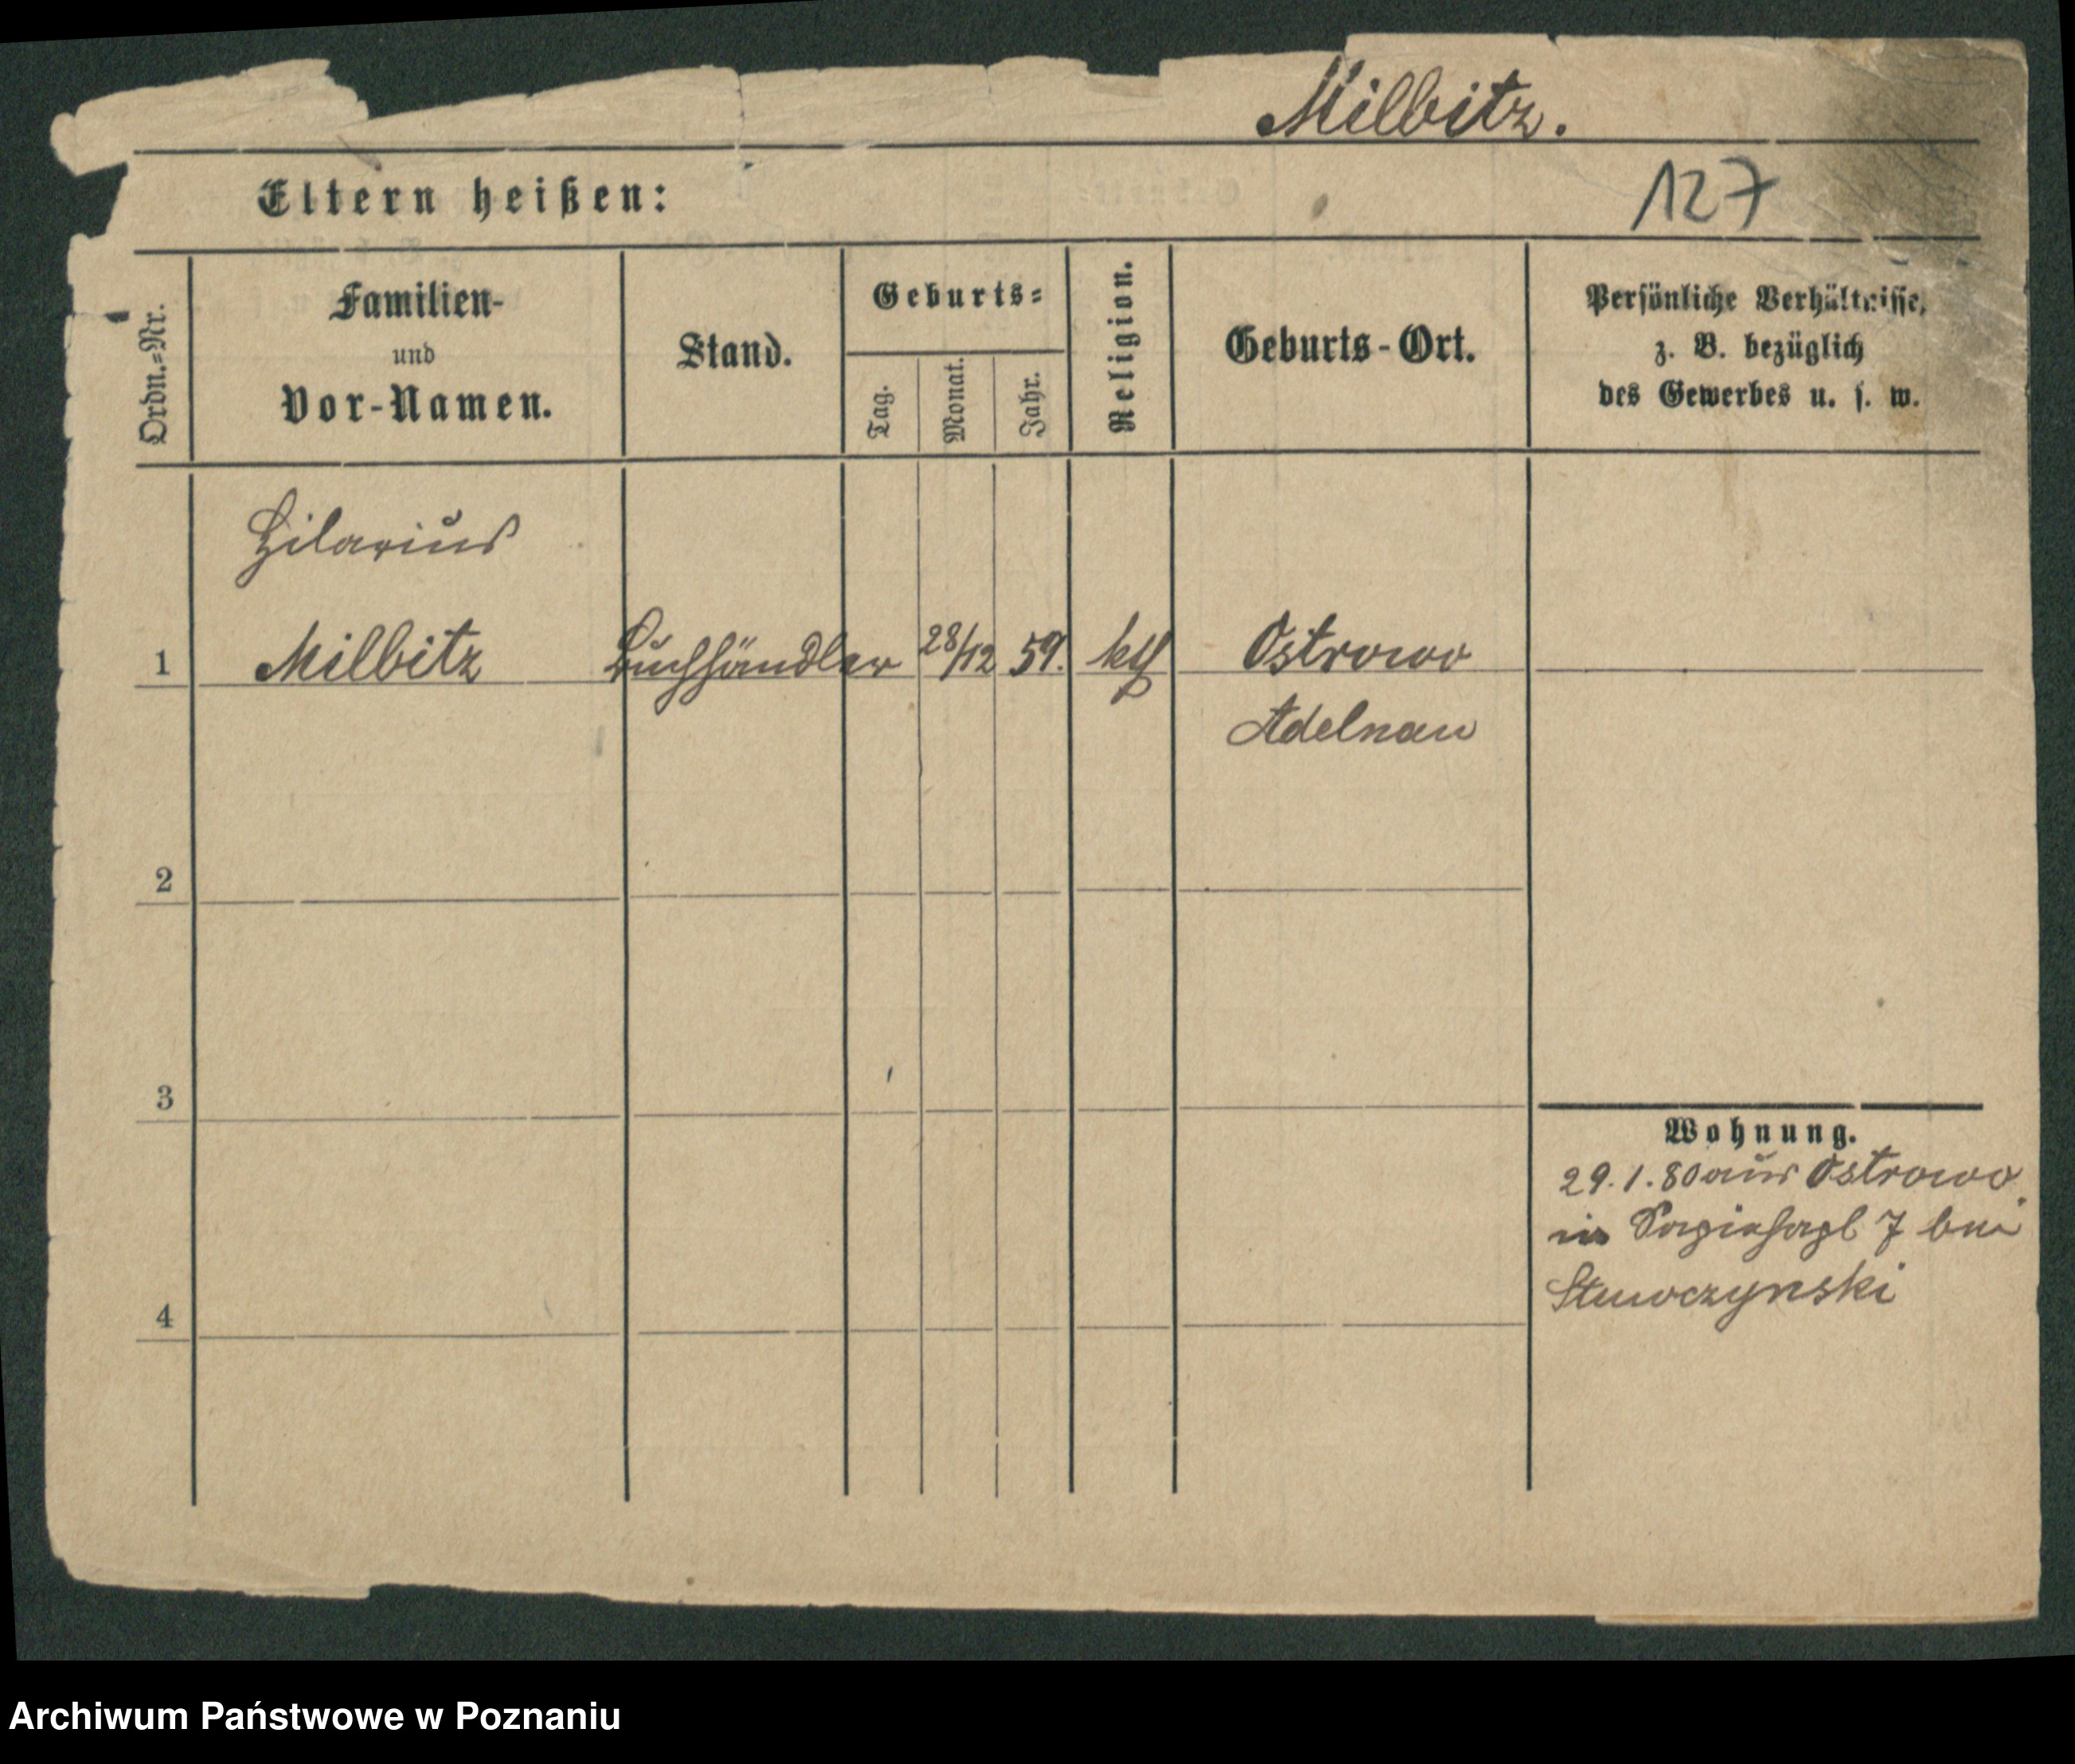 Milbitz.
Eltern heißen:
127
Ordn.=Nr.
Familien-
und
Vor-Namen.
Stand.
Geburts=
Tag.
Monat.
Jahr.
Religion.
Geburts-Ort.
Persönliche Verhältnisse,
z. B. bezüglich
des Gewerbes u. s. w.
Hilarius
1 Milbitz Buchhändler 28/12 59. kth Ostrowo
Adelnau
2
3
4
Wohnung.
29. 1. 80 aus Ostrowo
in 7 bei
Archiwum Państwowe w Poznaniu